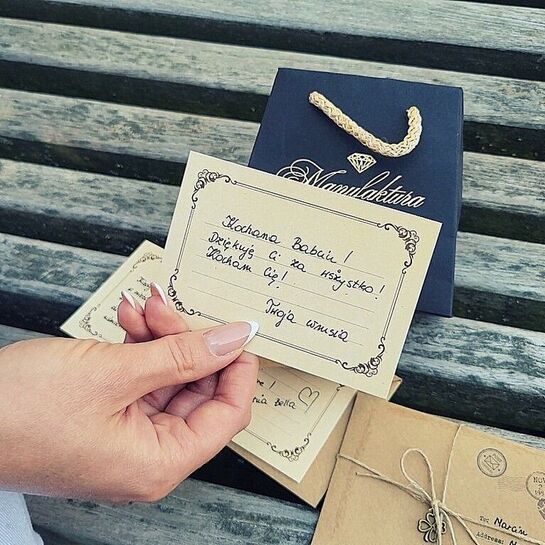 Manufaktura
Kochana Babciu!
Dziękuję Ci za wszystko!
Kocham Cię!
Twoja wnusia
Bella
To:
Address: